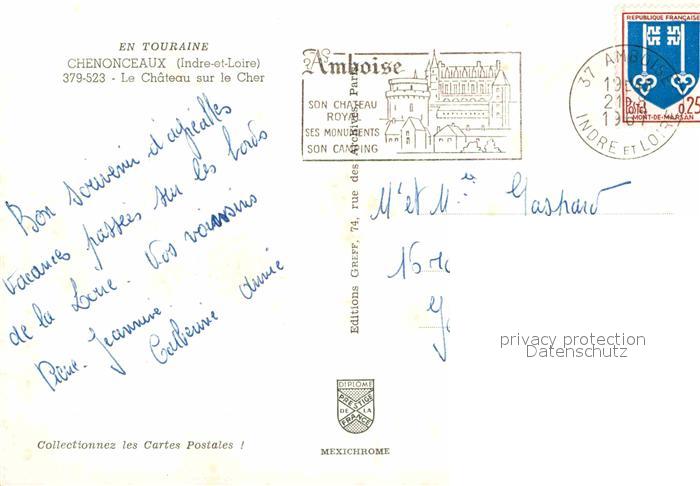 EN TOURAINE
CHENONCEAUX (Indre-et-Loire)
379-523 - Le Château sur le Cher
Bon souvenir d'agréables
vacances passées sur les bords
de la Loire. Vos voinsins
Pierre. Jeannine.
Catherine Annie
Collectionnez les Cartes Postales !
Amboise
SON CHATEAU
ROYAL
SES MONUMENTS
SON CAMPING
Editions GREFF, 74, rue des Archives, Paris
REPUBLIQUE FRANÇAISE
Postes 0,25
MONT-DE-MARSAN
37 AMBOISE
19
21
INDRE ET LOIRE
Mr et Mme Gaspard
privacy protection
Datenschutz
DIPLOME
PRESTIGE
DE LA
FRANCE
MEXICHROME